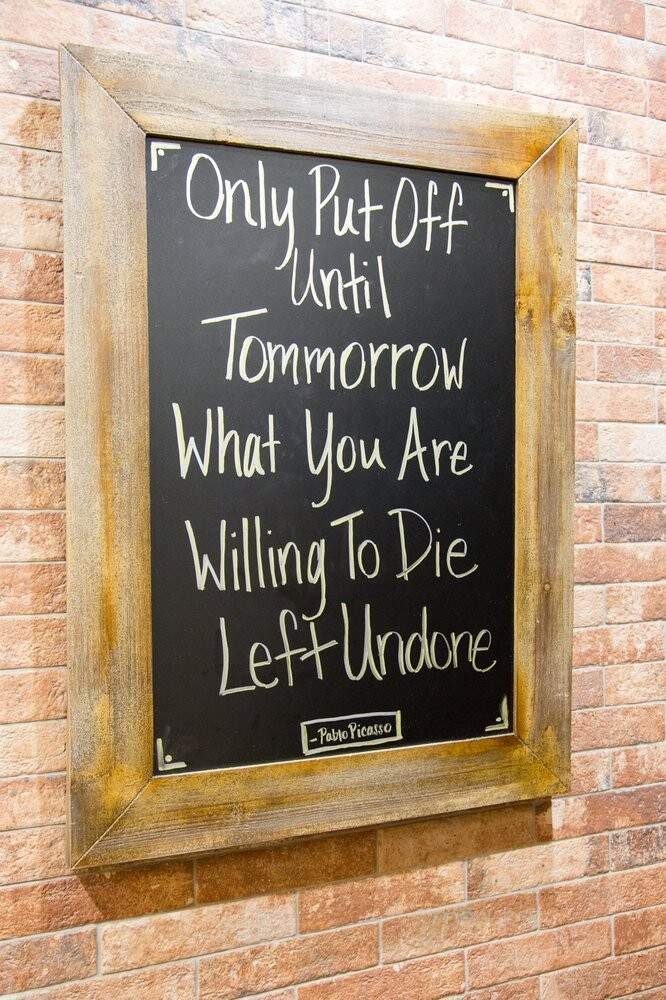 Only Put Off
Until
Tommorrow
What You Are
Willing To Die
Left Undone
-Pablo Picasso